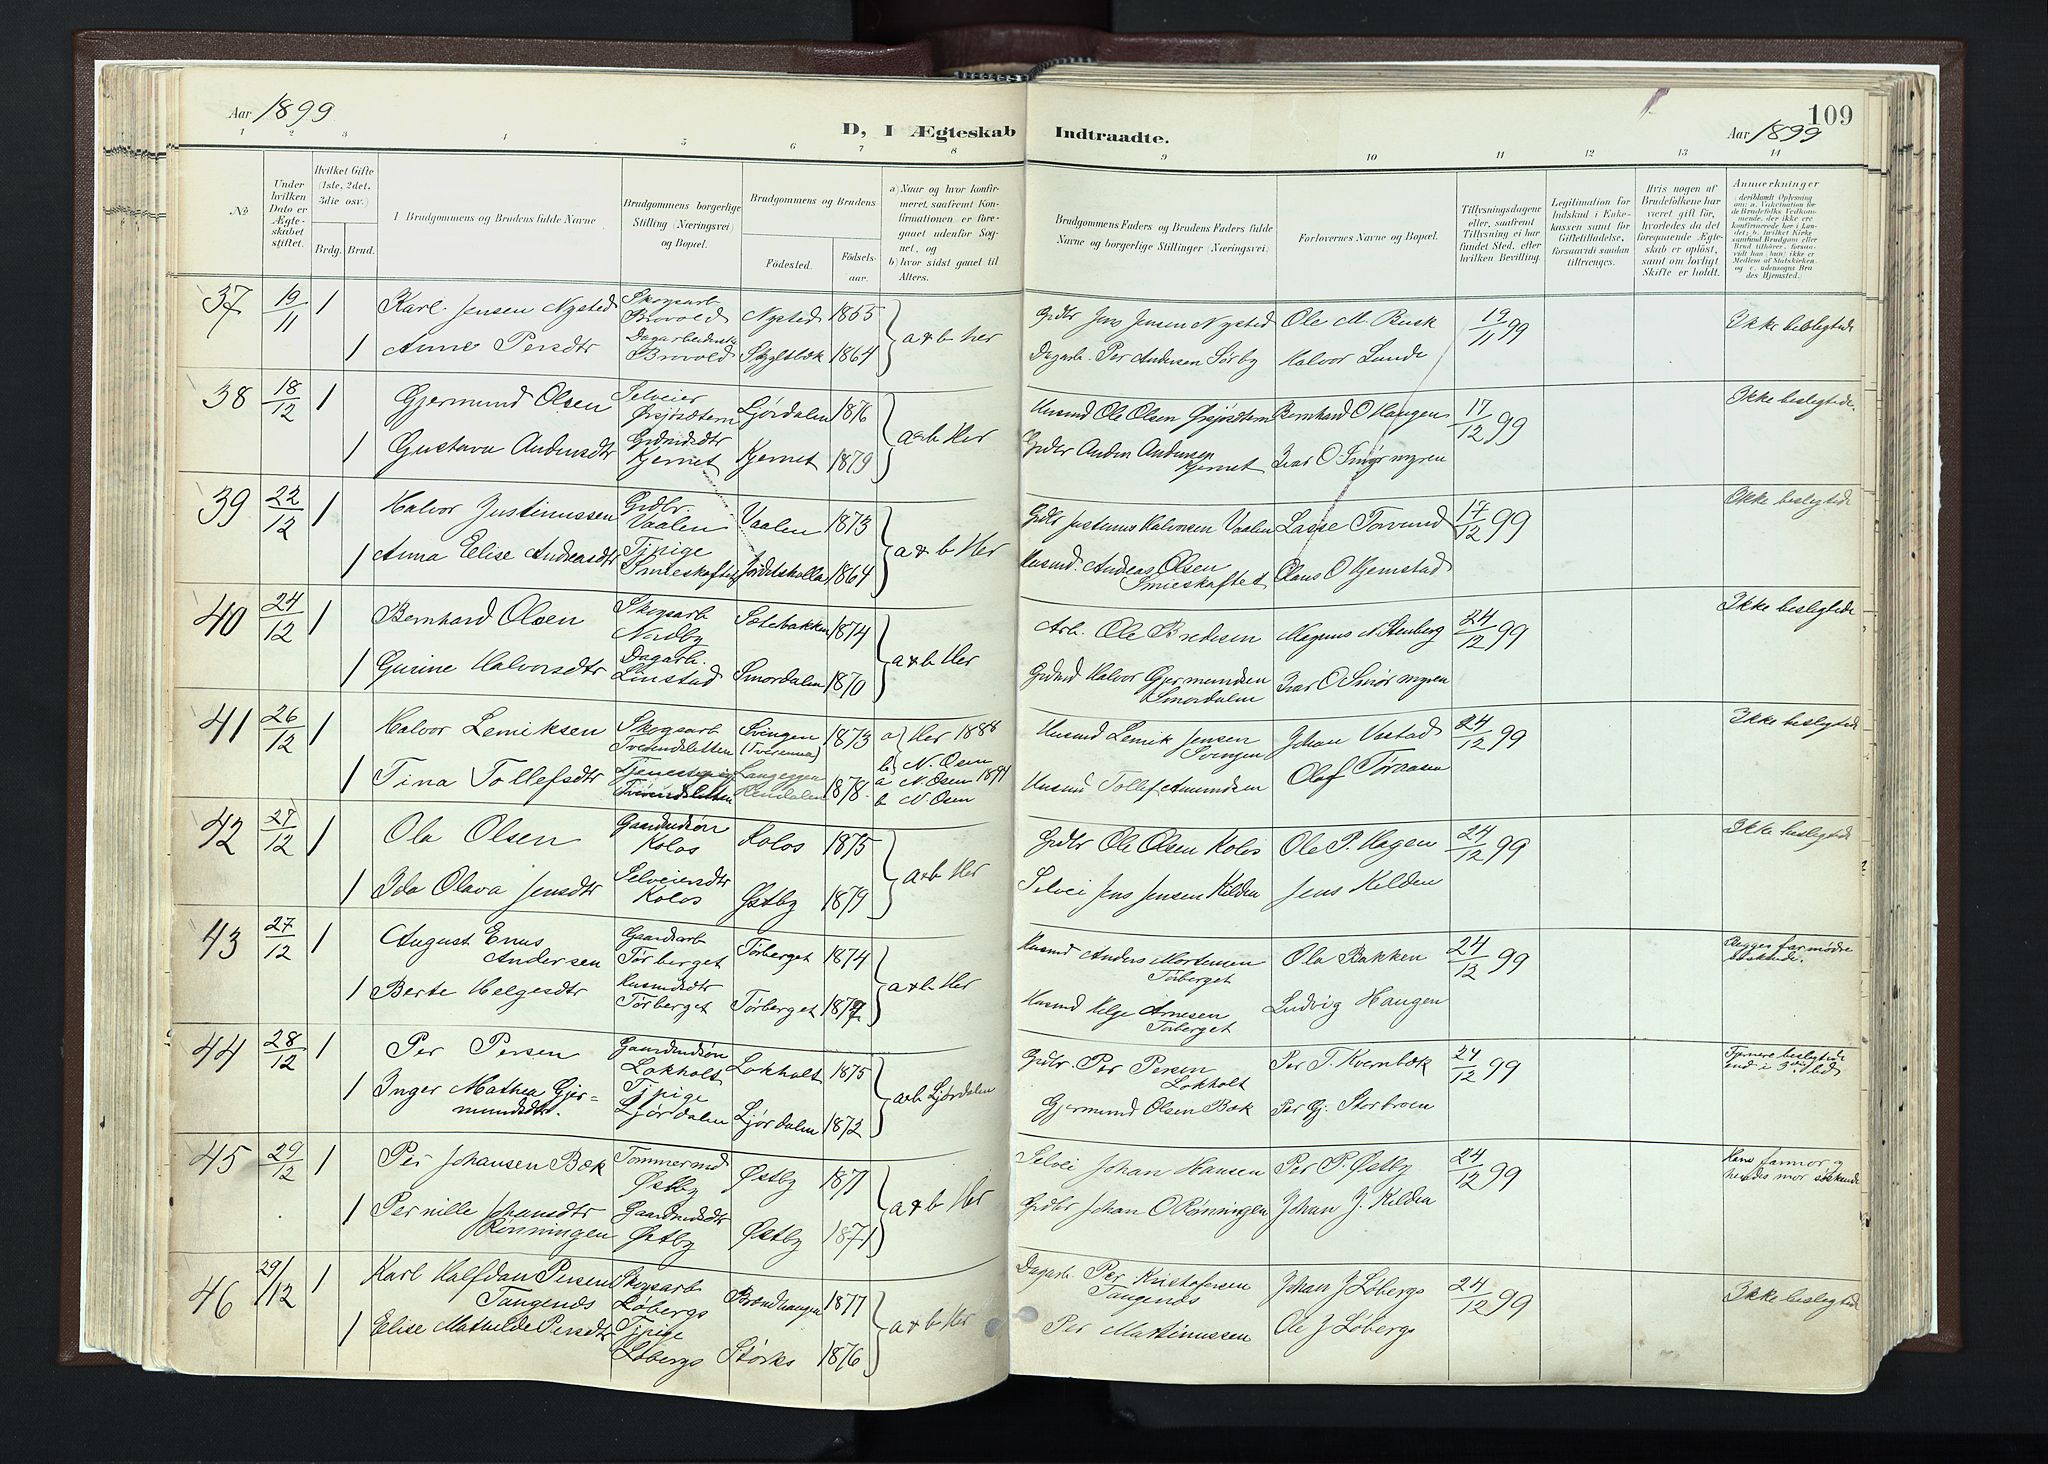 Aar 1899
D, I Ægteskab Indtraadte.
109
Aar 1899
1 2 3 4 5 6 7 8 9 10 11 12 13 14
№
Under hvilken Dato er Ægteskabet stiftet.
Hvilket Gifte (1ste, 2det, 3die osv.)
Brdg. Brud.
I Brudgommens og Brudens fulde Navne
Brudgommens borgerlige Stilling (Næringsvei) og Bopæl.
Brudgommens og Brudens
Fødested. Fødselsaar.
a) Naar og hvor konfirmeret, saafremt Konfirmationen er foregaaet udenfor Sognet, og
b) hvor sidst gaaet til Alters.
Brudgommens Faders og Brudens Faders fulde Navne og borgerlige Stillinger (Næringsvei)
Forlovernes Navne og Bopæl.
Tillysningsdagene eller, saafremt Tillysning ei har fundet Sted, efter hvilken Bevilling.
Legitimation for Indskud i Enkekassen samt for Giftetilladelse, forsaavidt saadan tiltrænges.
Hvis nogen af Brudefolkene har været gift før, hvorledes da det foregaaende Ægteskab er opløst, samt om lovligt Skifte er holdt.
Anmærkninger
37 19/11 1 Karl Jensen Nysted Skogsarb Brovold Nysted 1865 a & b her Grdbr Jens Jensen Nysted Ole M. Busk 19/11 99 Ikke beslegtede
1 Anne Persdtr Dagarbeidersk Brovold 1864 Dagarb. Per Andersen Sørby Halvor Lunde
38 18/12 1 Gjermund Olsen Selveier Ørsjøsætern Ljørdalen 1876 a & b Her Husmd Ole Olsen Ørsjøsætern Bernhard O Haugen 17/12 99 Ikke beslegtede.
1 Gustava Andersdtr Grdmdsdtr Kjernet Kjernet 1879 Grdbr Anders Andersen Kjernet Ivar O Smørmyren
39 22/12 1 Halvor Justinussen Grdbr. Vaalen Vaalen 1873 a & b Her Grdbr Justinus Halvorsen Vaalen Lasse Torvund 17/12 99 Ikke beslegtede
1 Anna Elise Andreasdtr Tjpige Smieskaftet 1864 Husmd. Andreas Olsen Smieskaftet Claus O Kjemstad
40 24/12 1 Bernhard Olsen Skogsarb Nordby Sætebakken 1874 a & b Her Arb. Ole Bredesen Magnus N Stenberg 24/12 99 Ikke beslegtede
1 Gurine Halvorsdtr Dagarb. Linstad Smordalen 1870 Grdmd Halvor Gjermundsen Smordalen Ivar O Smørmyren
41 26/12 1 Halvor Lemiksen Skogsarb Tverendsletten Svingen (Tverenna) 1873 a) Her 1888 b) N. Osen Husmd Lemik Jensen Svingen Johan Ulstad 24/12 99 Ikke beslegtede
1 Tina Tollefsdtr Tjenestepige Tverendsletten Langeggen Rendalen 1878. a N. Osen 1894 b N. Osen Husmd Tollef Amundsen Olaf Toraasen
42 27/12 1 Ola Olsen Gaardmdsøn Kolos Kolos 1875 a & b Her Grdbr Ole Olsen Kolos Ole P. Hagen 24/12 99 Ikke beslegtede
1 Ida Olava Jensdtr Selveiersdtr Kolos Østby 1879 Selvei Jens Jensen Kilden Jens Kilden
43 27/12 1 August Enus Andersen Gaardsarb Tørberget Tørberget 1874 a & b Her Husmd Anders Mortensen Tørberget Ola Bakken 24/12 99 Begges farmødre søskende.
1 Berte Helgesdtr Husmdsdtr Tørberget Tørberget Husmd Helge Arnesen Tørberget Ludvig Haugen
44 28/12 1 Per Persen Gaardmdsøn Lokholt Lokholt 1875 a & b Ljørdalen Grdbr. Per Persen Lokholt Per T. Kvernbæk 24/12 99 Fjernere beslegtede end i 3die led
1 Inger Mathea Gjermundsdtr. Tjpige Ljørdalen Ljørdalen 1872 Gjermund Olsen Bæk Per Gj. Storbroen
45 29/12 1 Per Johansen Bæk Tømmermd Østby Østby 1871 a & b Her Selvei Johan Hansen Per P. Østby 24/12 99 Hans farmor og hendes mor søskende
1 Pernille Johansdtr Rønningen Gaardmdsdtr Østby Østby 1871 Grdbr Johan O Rønningen Johan J. Kilden
46 29/12 1 Karl Halfdan Persen Tangends Skogsarb Løbergs Brændhaugen 1877 a & b Her Dagarb. Per Kristofersen Tangends Johan J Løbergs 24/12 99 Ikke beslegtede
1 Elise Mathilde Persdtr Tjpige Løbergs Størks 1876 Per Martinussen Ole J Løbergs